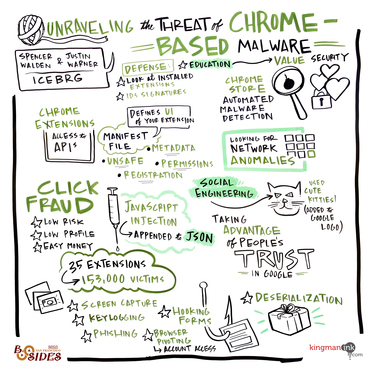 UNRAVELING the THREAT of CHROME-
BASED MALWARE
SPENCER & JUSTIN
WALDEN WARNER
ICEBRG
DEFENSE:
☆ EDUCATION
☆ LOOK at INSTALLED
EXTENSIONS
☆ IDS SIGNATURES
VALUE SECURITY
CHROME
STORE
AUTOMATED
MALWARE
DETECTION
CHROME
EXTENSIONS
ACCESS to
APIs
DEFINES UI
of YOUR EXTENSION
MANIFEST
FILE
• METADATA
• UNSAFE
• PERMISSIONS
• REGISTRATION
LOOKING FOR
NETWORK
ANOMALIES
CLICK
FRAUD
☆ LOW RISK
☆ LOW PROFILE
☆ EASY MONEY
JAVASCRIPT
INJECTION
APPENDED to JSON
SOCIAL
ENGINEERING
USED
CUTE
KITTIES!
(ADDED a
GOOGLE
LOGO)
TAKING
ADVANTAGE
OF PEOPLE'S
TRUST
IN GOOGLE
35 EXTENSIONS
153,000 VICTIMS
☆ SCREEN CAPTURE
☆ KEYLOGGING
☆ PHISHING
☆ HOOKING
FORMS
☆ BROWSER
PIVOTING
ACCOUNT ACCESS
☆ DESERIALIZATION
BSIDES
kingmanink
.com